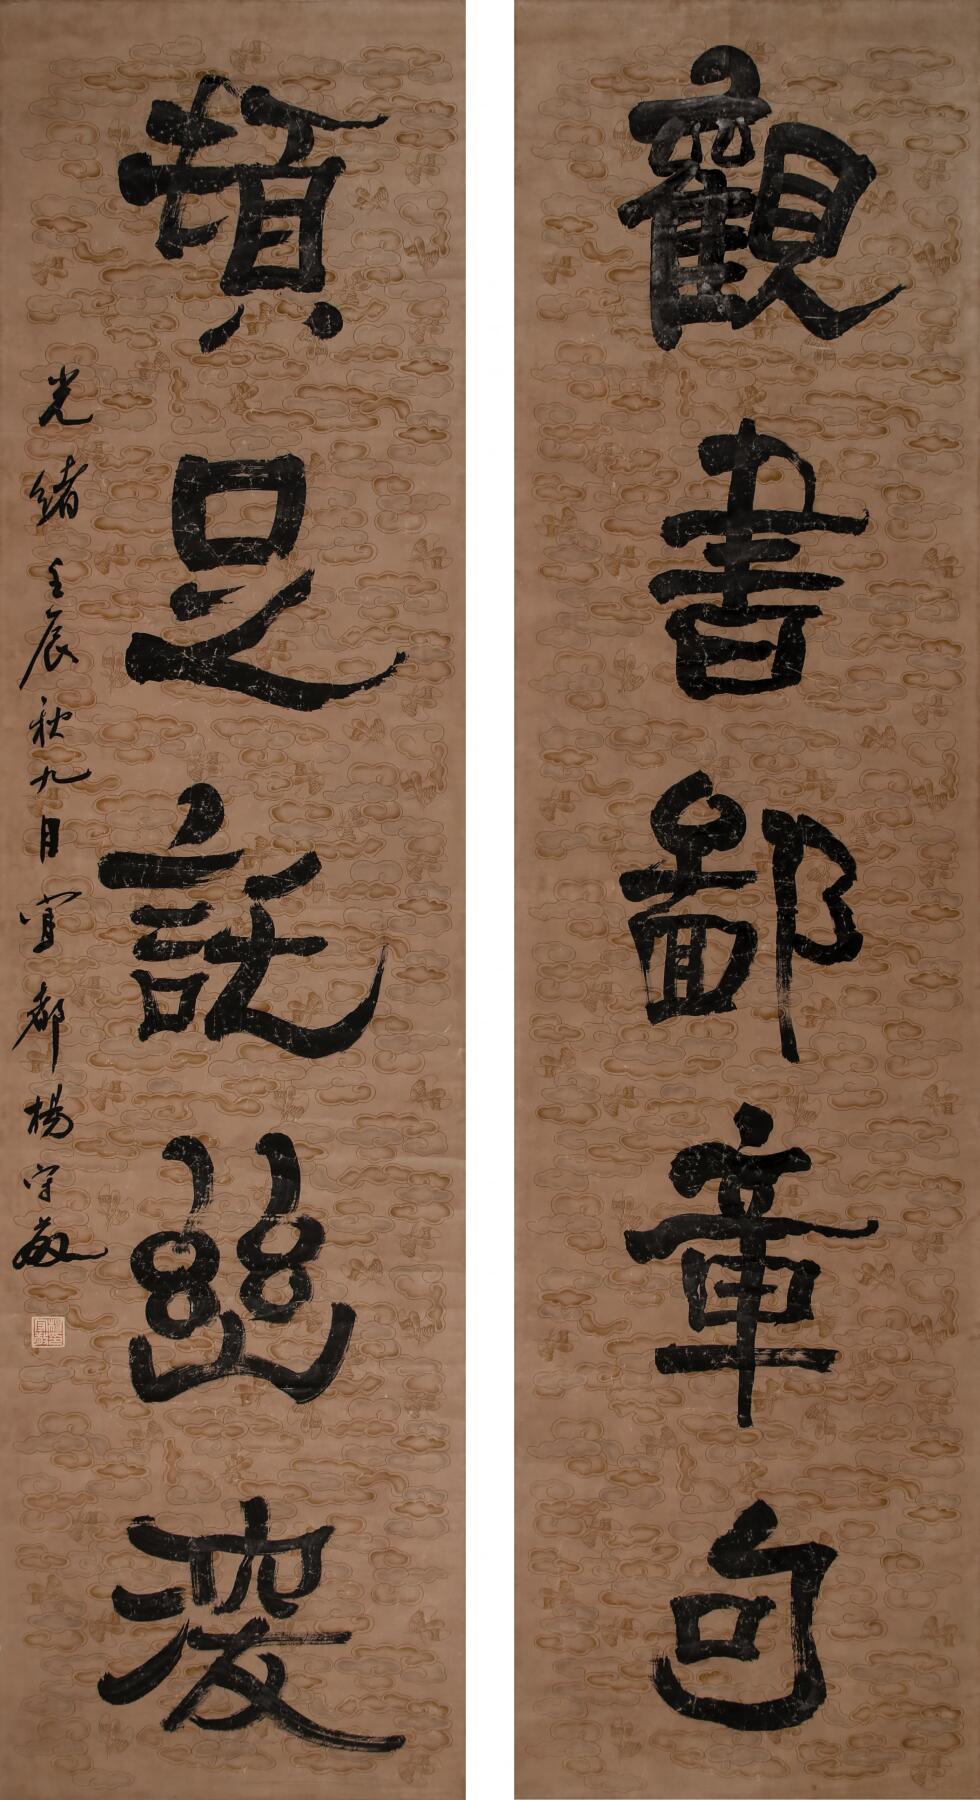 觀書鄙章句
足託幽
光緒壬辰秋九月宜都楊守敬